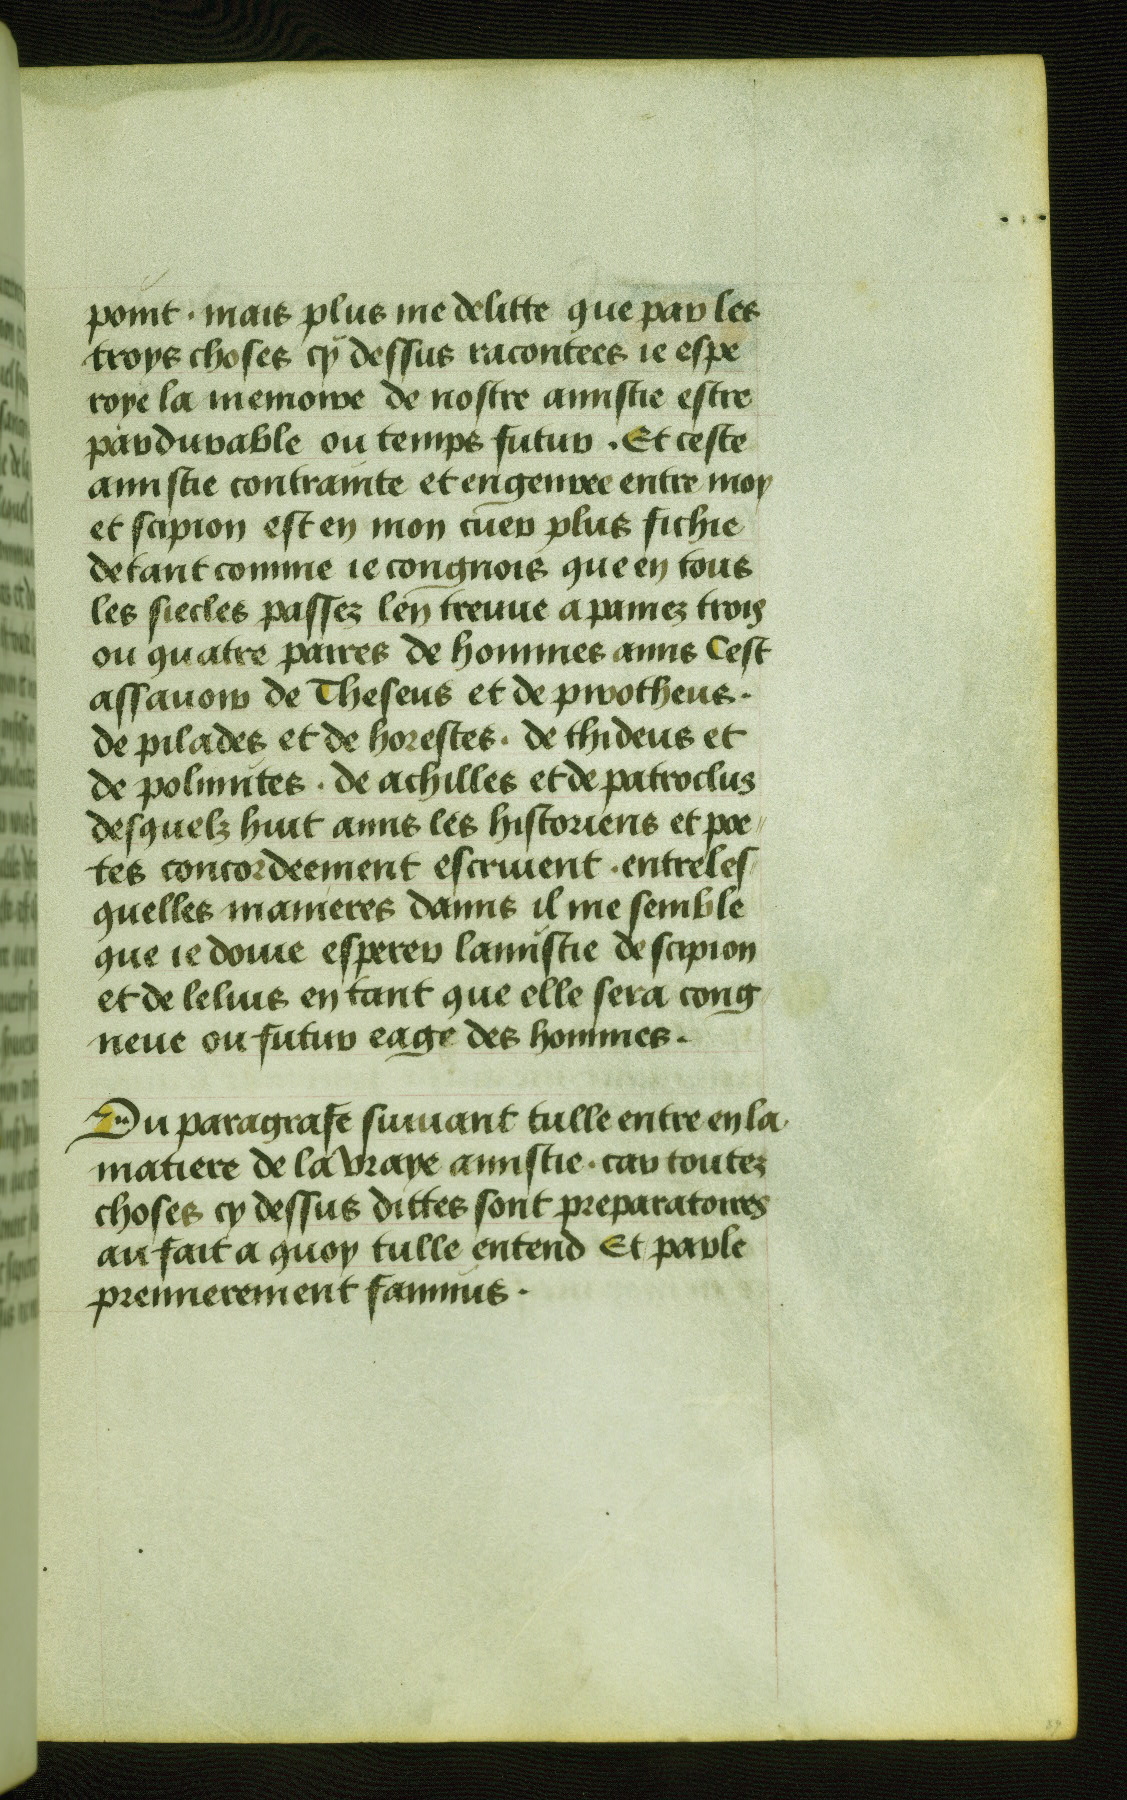 point . mais plus me delitte que par les
troys choses cy dessus racontees ie espe
roye la memoire de nostre amistie estre
pardurable ou temps futur . Et ceste
amistie contrainte et engenree entre moy
et scipion est en mon cueur plus fichie
de tant comme ie congnois que en tous
les siecles passez len treuue a painez trois
ou quatre paires de hommes amis Cest
assauoir de Theseus et de pirotheus .
de pilades et de horestes . de thideus et
de polimites . de achilles et de patroclus
desquelz huit amis les historiens et poe
tes concordeement escriuent . entre les
quelles manieres damis il me semble
que ie doiue esperer lamistie de scipion
et de lelius en tant que elle sera cong
neue ou futur eage des hommes .
Du paragrafe suiuant tulle entre en la
matiere de la vraye amistie . car toutez
choses cy dessus dittes sont preparatoires
au fait a quoy tulle entend Et parle
premierement fannius .